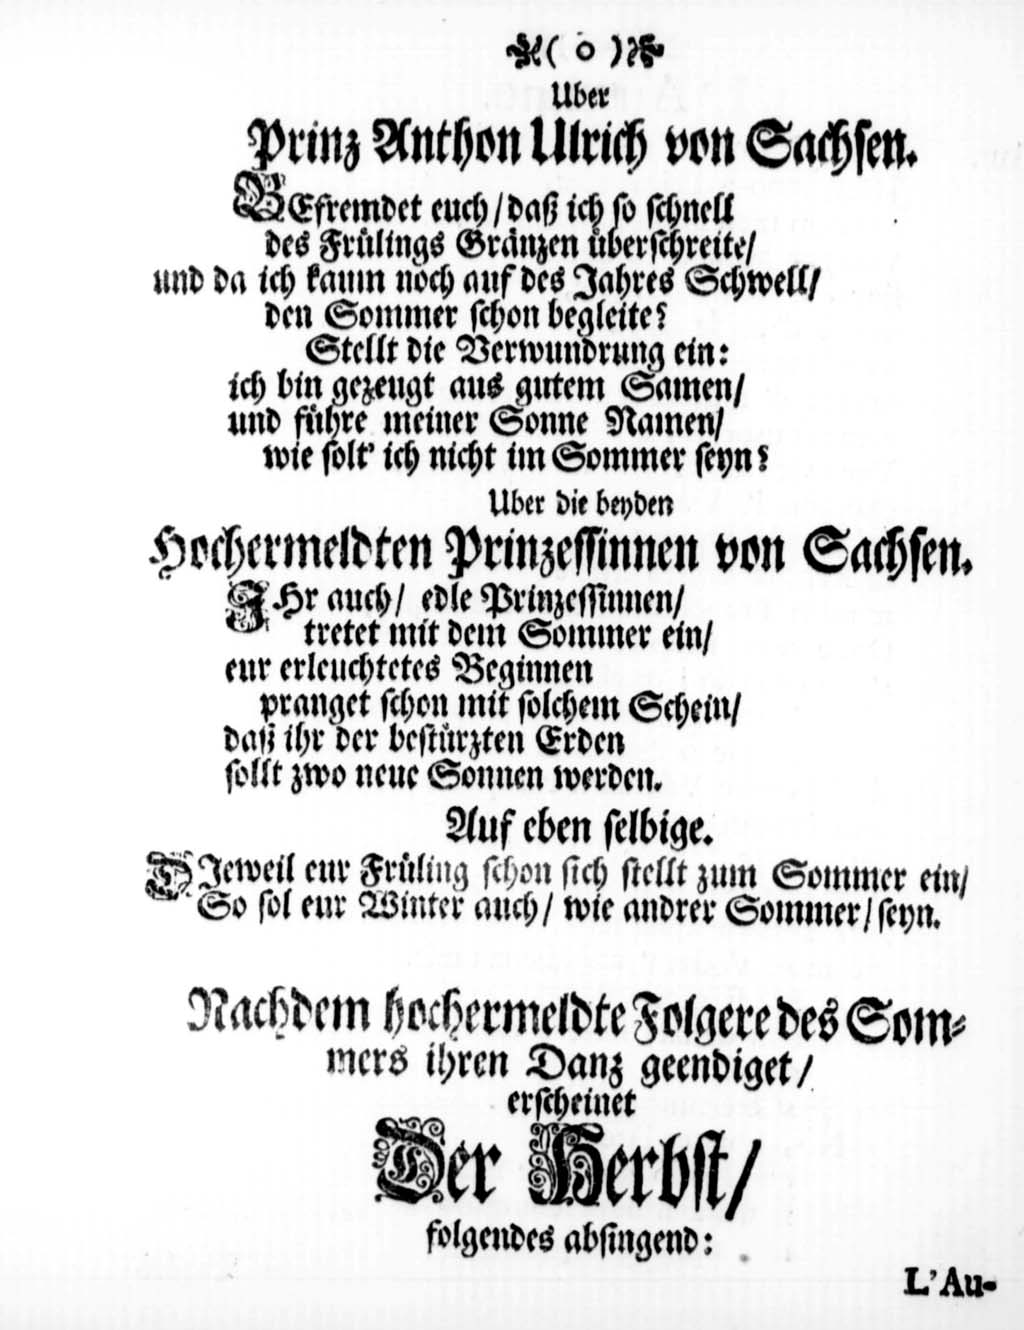 ( o )
Uber
Prinz Anthon Ulrich von Sachsen.
BEfremdet euch/ daß ich so schnell
des Frülings Gränzen überschreite/
und da ich kaum noch auf des Jahres Schwell/
den Sommer schon begleite?
Stellt die Verwundrung ein:
ich bin gezeugt aus gutem Samen/
und führe meiner Sonne Namen/
wie solt' ich nicht im Sommer seyn?
Uber die beyden
Hochermeldten Prinzessinnen von Sachsen.
IHr auch/ edle Prinzessinnen/
tretet mit dem Sommer ein/
eur erleuchtetes Beginnen
pranget schon mit solchem Schein/
daß ihr der bestürzten Erden
sollt zwo neue Sonnen werden.
Auf eben selbige.
DJeweil eur Früling schon sich stellt zum Sommer ein/
So sol eur Winter auch/ wie andrer Sommer/ seyn.
Nachdem hochermeldte Folgere des Som-
mers ihren Danz geendiget/
erscheinet
Der Herbst/
folgendes absingend:
L'Au-